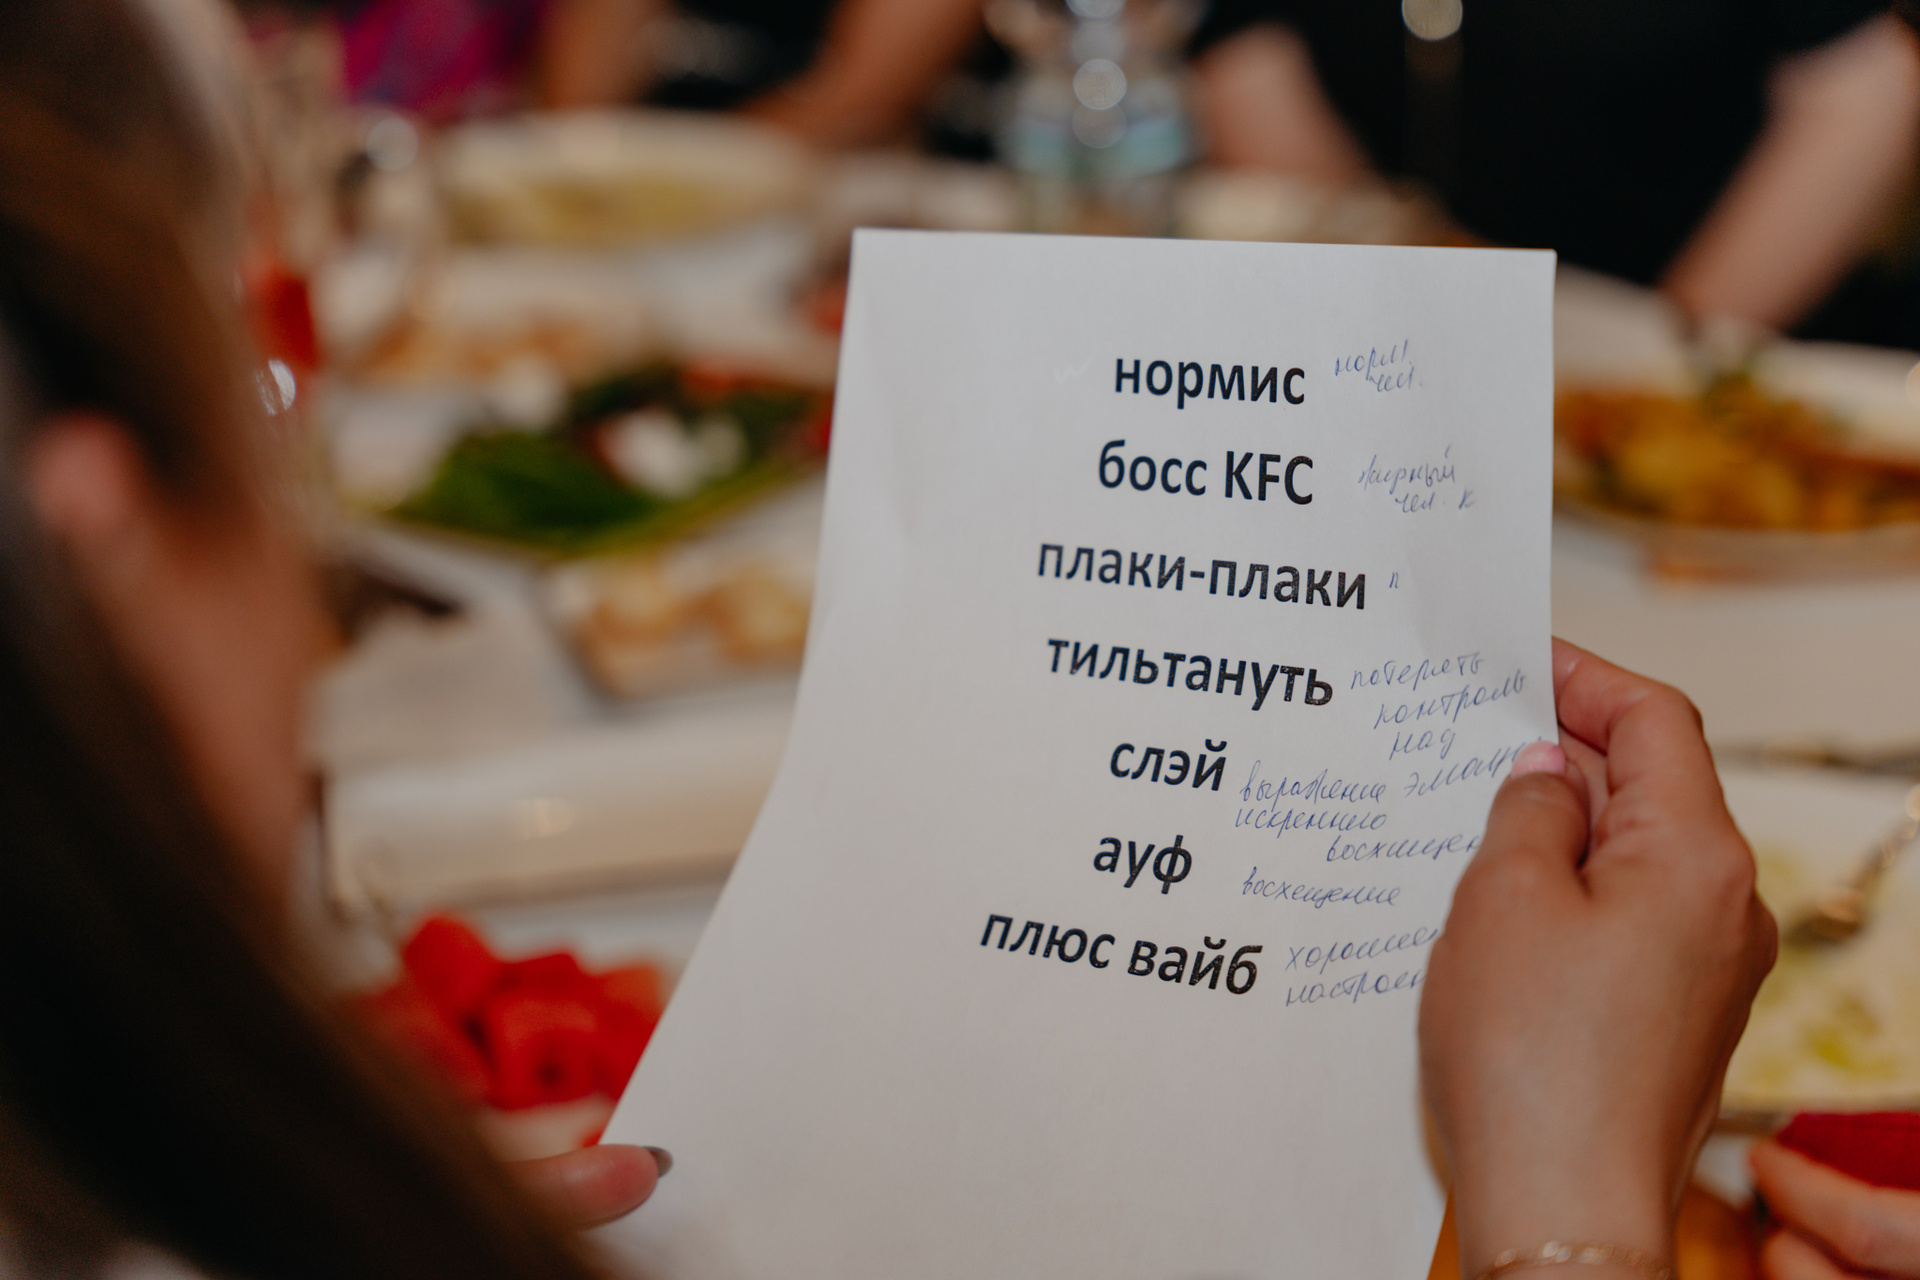 нормис норм.
чел.
босс KFC жирный
чел. к
плаки-плаки п
тильтануть потерять
контроль
над
слэй выражение эмоци
искреннего
восхищен
ауф восхещение
плюс вайб хорошее
настроен